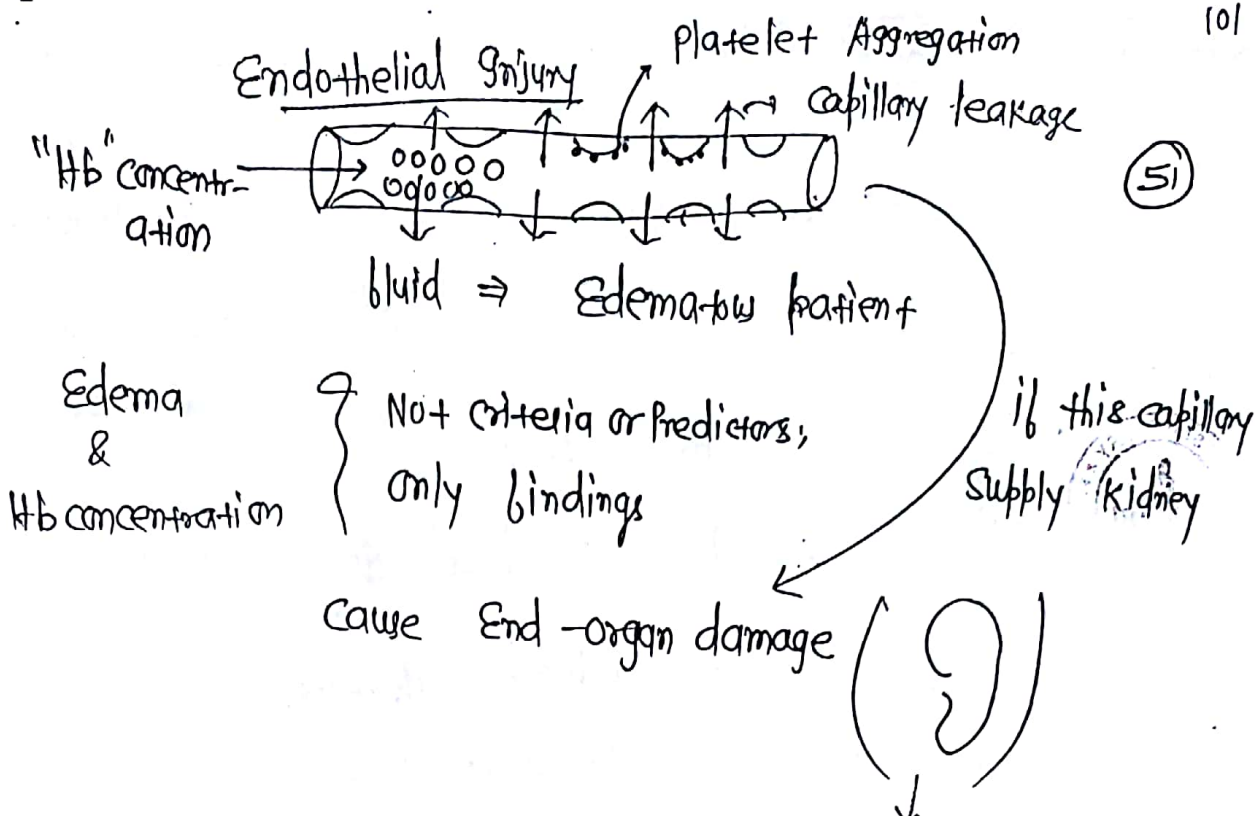 101
Platelet Aggregation
Endothelial Injury
capillary leakage
"Hb" concentr-
ation
51
fluid ⇒ Edematous patient
Edema
&
Hb concentration
Not criteria or Predictors;
only findings
if this capillary
supply kidney
cause End-organ damage